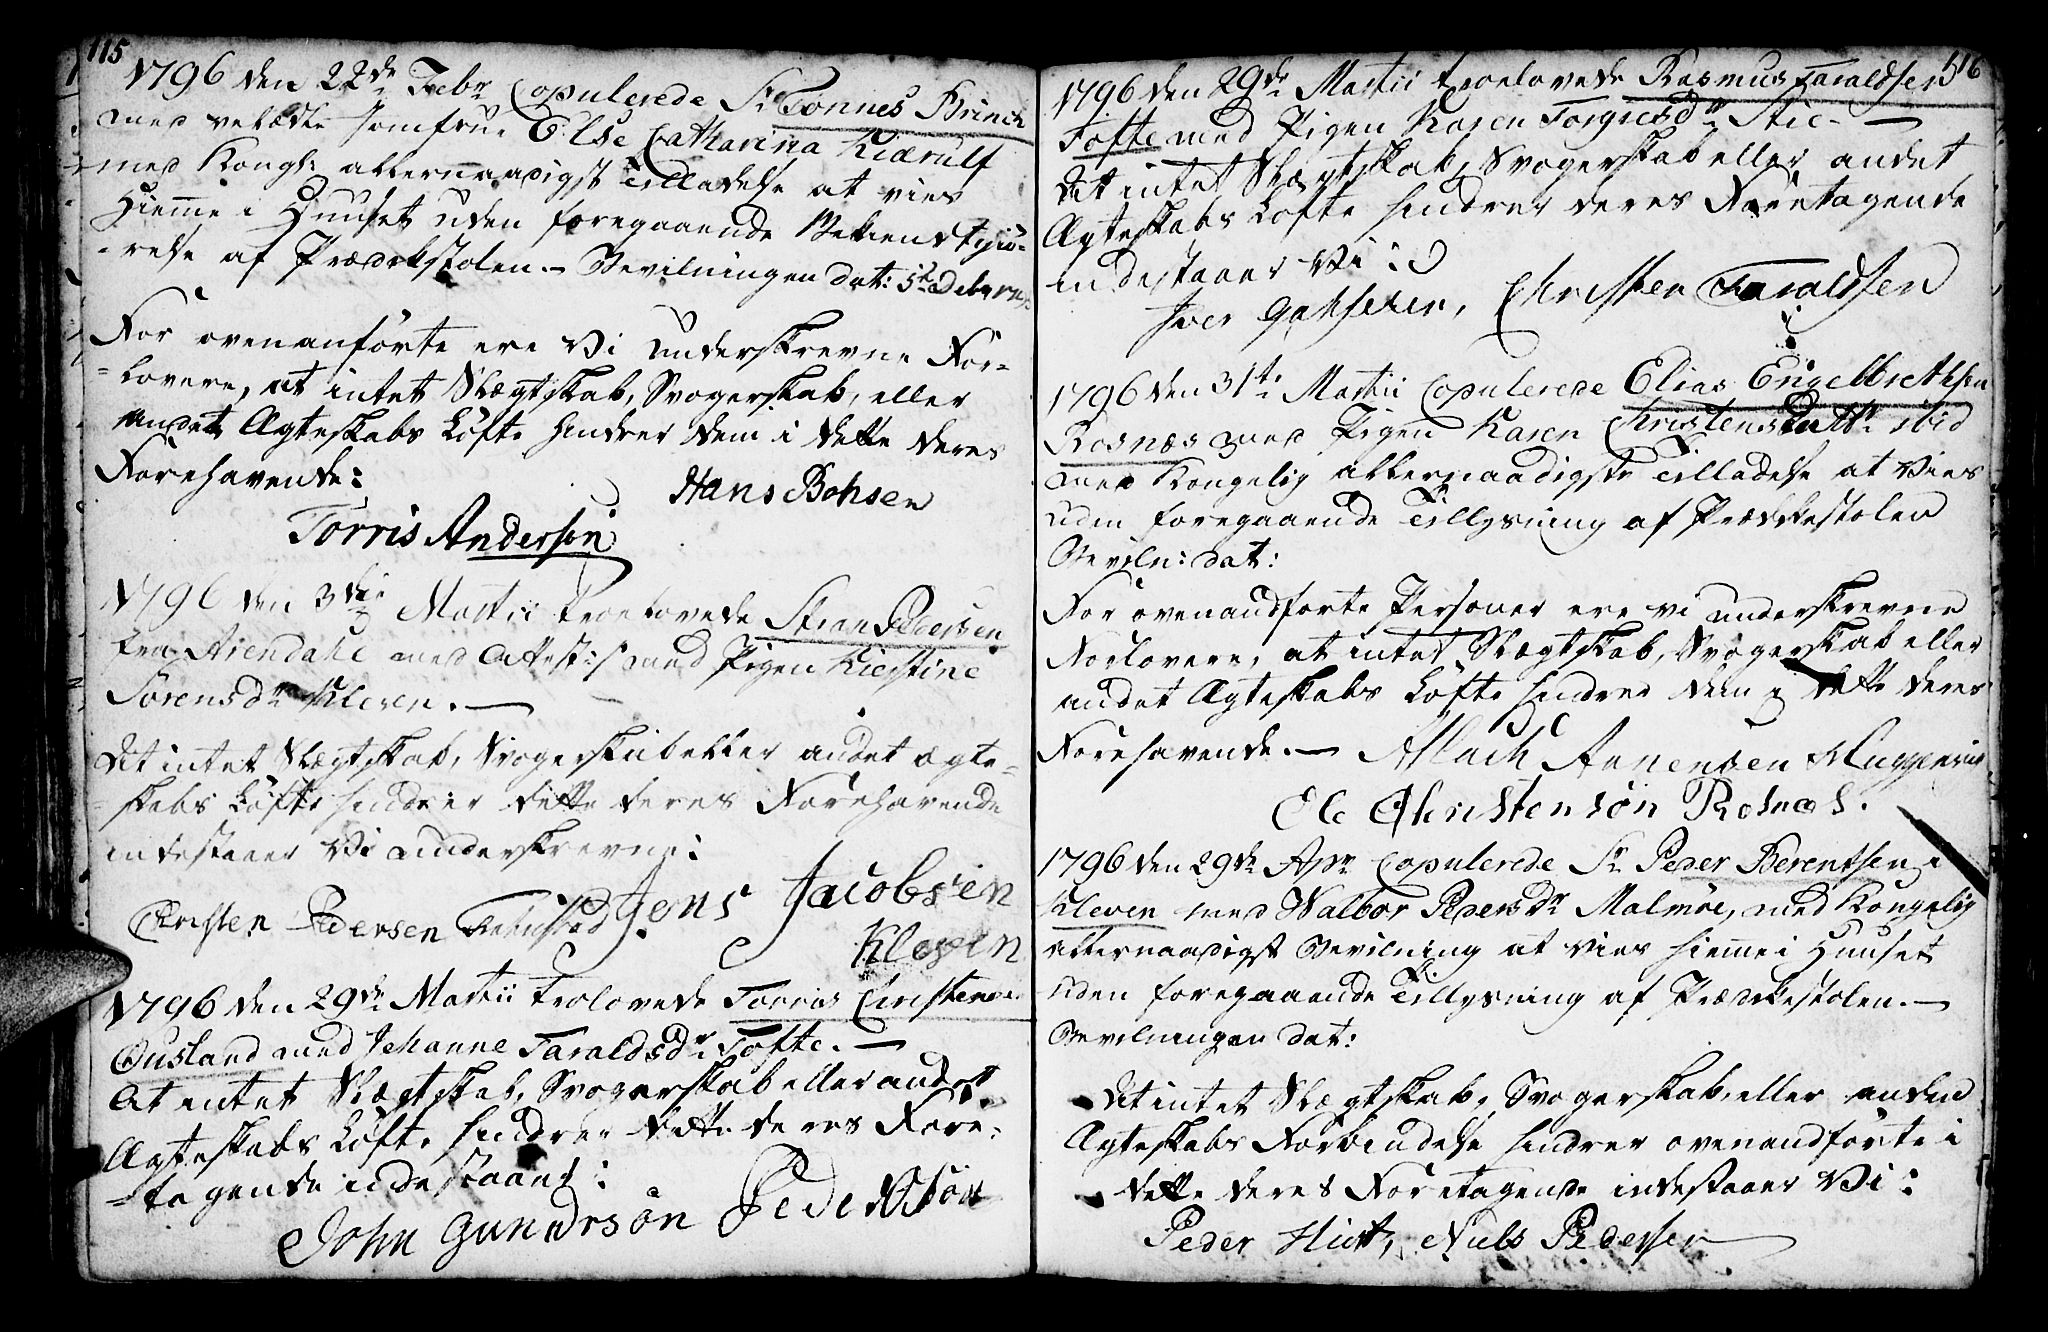 115
1796 den 22de Febr Copulerede Sr Tønnes Brinch
med velædle Jomfrue Else Catharina Kiærulf
med Kongl: allernaadigst Tilladelse at vies
Hieme i Huuset uden foregaaende Bekiendtgiø-
-relse af Prædikstolen. – Bevilningen dat:
For ovenanførte ere Vi Underskrevne For-
-lovere, at intet Slægtskab, Svogerskab, eller
andet Ægteskabs Løfte hindrer dem i dette deres
Forehavende:
Hans Bohsen
Torris Andersen
1796 den 3die Martii troelovede Steen Pedersen
fra Arendahl med Attest med Pigen Kierstine
Sørensdr Kleven. –
At intet Slægtskab, Svogerskab eller andet ægte-
-skabs Løfte hindrer dette deres Forehavende
indestaaer Vi underskrevne:
Christen Pedersen Jens Jacobsen
Kleven
1796 den 29de Martii trolovede Torris Christensen
Ousland med Johanne Taraldsdr Tofte. –
At intet Slægtskab, Svogerskab eller andet
Ægteskabs Løfte hindrer dette deres Fore-
-tagende indestaaer:
John Gundrsøn Peder Olsøn
116
1796 den 29de Martii troelovede Rasmus Taraldsen
Tofte med Pigen Karen Torgiersdr Stie –
At intet Slægtskab, Svogerskab eller andet
Ægteskabs Løfte hindrer deres Foretagende
indestaaer Vi:
Iver Christen Taraldsen
1796 den 31te Martii Copulerede Elias Engelbrethsen
Rosnæs med Pigen Karen Christensdattr ibid
med Kongelig allernaadigste Tilladelse at Vies
uden foregaaende Tillysning af Prædikestolen
Beviln: dat:
For ovenandførte Personer ere vi underskrevne
Forlovere, at intet Slægtskab, Svogerskab eller
andet Ægteskabs Løfte hindrer dem i dette deres
Forehavende. – Aslach Annensen
Ole Christensøn Rosnæs.
1796 den 29de Apr Copulerede Sr Peder Berentsen i
Kleven med Walbor Pedersdr Malmøe, med Kongelig
allernaadigst Bevilning at vies hieme i Huuset
uden foregaaende Tillysning af Prædikestolen. –
Bevilningen dat:
At intet Slægtskab, Svogerskab, eller anden
Ægteskabs Forbindelse hindrer ovenandførte i
dette deres Foretagende indestaaer Vi:
Peder Niels Pedersen